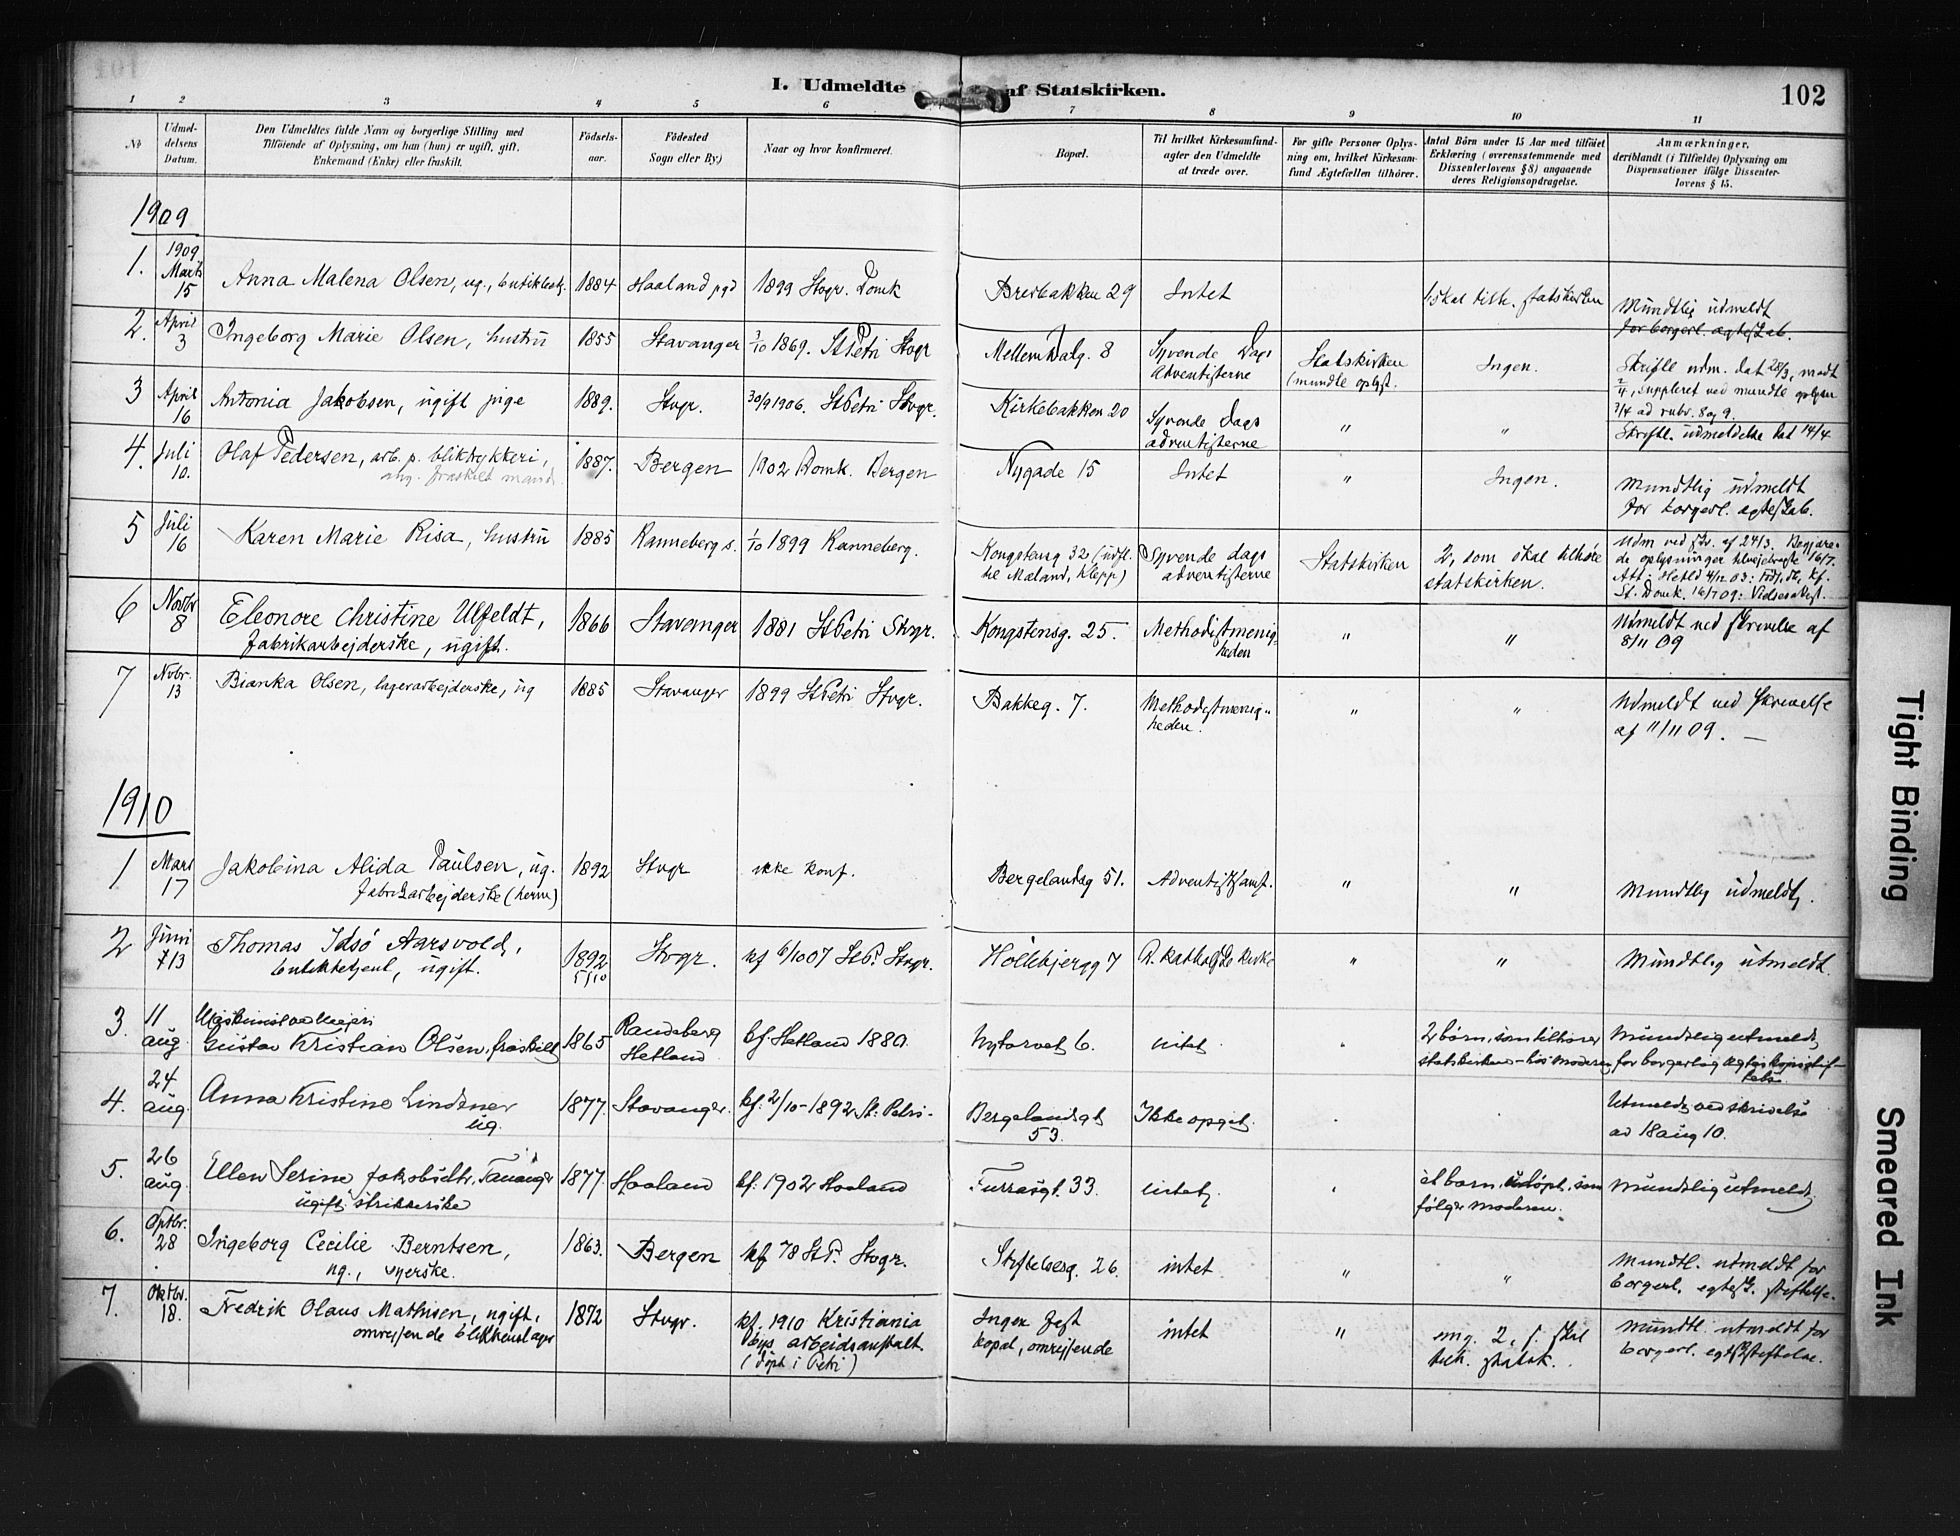 I. Udmeldte af Statskirken.
102
1 2 3 4 5 6 7 8 9 10 11
No
Udmeldelsens Datum.
Den Udmeldtes fulde Navn og borgerlige Stilling med
Tilføiende af Oplysning, om han (hun) er ugift, gift,
Enkemand (Enke) eller fraskilt.
Fødselsaar.
Fødested
Sogn eller By.)
Naar og hvor konfirmeret.
Bopæl.
Til hvilket Kirkesamfund
agter den Udmeldte
at træde over.
For gifte Personer Oplysning om, hvilket Kirkesamfund Ægtefællen tilhører.
Antal Børn under 15 Aar med tilføiet
Erklæring (overensstemmende med
Dissenterlovens § 8) angaaende
deres Religionsopdragelse.
Anmærkninger,
deriblandt (i Tilfælde) Oplysning om
Dispensationer ifølge Dissenterlovens § 15.
1909
1. 1909 Marts 15 Anna Malena Olsen, ug., 1884 Haaland pgd 1899 Stvgr. Domk Breibakken 29 Intet skal tilh. statskirken Mundtlig udmeldt
for borgerl. ægtesk.
2. April 3 Ingeborg Marie Olsen, hustru 1855 Stavanger 3/10 1869. St Petri Stvgr Mellem Dalg. 8 Syvende Dags
Adventisterne Statskirken
(mundtl. oplyst. Ingen. Skriftl. udm. dat 28/3, modt
2/4, suppleret ved mundtl. oplysn
3/4 ad rubr. 8 og 9.
3 April 16 Antonia Jakobsen, ugift pige 1889. Stvgr. 30/9 1906. St Petri Stvgr. Kirkebakken 20 Syvende Dags
adventisterne " " Skriftl. udmeldelse dat 14/4
4. Juli 10. Olaf Pedersen, arb. p. bliktrykkeri,
ang. fraskilt mand. 1887. Bergen 1902 Domk. Bergen Nygade 15 Intet " Ingen. Mundtlig udmeldt
for borgerl. ægtesk.
5 Juli 16 Karen Marie Risa, hustru 1885 Ranneberg s. 1/10 1899 Ranneberg. Kongsteng 32 (udfl.
til Maland, Klepp) Syvende dags
adventisterne Statskirken 2, som skal tilhøre
statskirken. Udm ved skr. af 24/3.
6 Novbr 8 Eleonore Christine Ulfeldt,
fabrikarbejderske, ugift. 1866 Stavanger 1881 St Petri Stvgr. Kongstensg. 25. Methodistmenigheden " " Udmeldt ved skrivelse af
8/11 09
7 Novbr. 13 Bianka Olsen, lagerarbejderske, ug 1885 Stavanger 1899 St Petri Stvgr. Bakkeg. 7. Methodistmenigheden. " " Udmeldt ved skrivelse
af 11/11 09. —
1910
1 Mars 17 Jakobina Alida Paulsen, ug.
fabrikarbejderske (herm) 1892 Stvgr ikke konf. Bergelandsg 51. Adventistsamf. " " Mundtlig udmeldt.
2 Juni 13 Thomas Idsö Aarsvold,
butikbetjent, ugift. 1892 5/10 Stvgr. kf 6/10 07 St P. Stvgr. Holebjergg 7 R. katholske kirke " " Mundtlig utmeldt.
3. 11 aug. Maskinist ved Meieri
Gustav Kristian Olsen, fraskilt 1865 Randeberg
Hetland kf. Hetland 1880. Nytorvet 6. intet. 2 børn, som tilhører
statskirken – hos moderen Mundtlig utmeldt
for borgerlig ægteskapsstiftelse
4. 24 aug. Anna Kristine Lindtner
ug. 1877. Stavanger. kf. 2/10 - 1892 St. Petri. Bergelandsgt
53. Ikke opgit. Utmeldt ved skrivelse
av 18 aug 10.
5. 26 aug. Ellen Serine Jakobsdtr. Tananger
ugift. strikkerske 1877. Haaland kf. 1902 Haaland Furrasgt. 33. intet. et barn, udøpt, som
følger moderen. Mundtlig utmeldt
6. Sptbr. 28 Ingeborg Cecilie Berntsen,
ug., syerske. 1863. Bergen kf 78 St P. Stvgr. Stiftelsesg. 26. intet " " Mundtl. utmeldt for
borgerl. egtesk. stiftelse.
7. Oktbr. 18. Fredrik Olaus Mathisen, ugift,
omreisende blikkenslager 1872 Stvgr. kf. 1910 Kristiania
bys arbeidsanstalt.
(døpt i Petri) Ingen fast
bopæl, omreisende intet " ang. 2, s. skal
tilh. statsk. Mundtl. utmeldt for
borgerl. egtesk. stiftelse.
Tight Binding
Smeared Ink